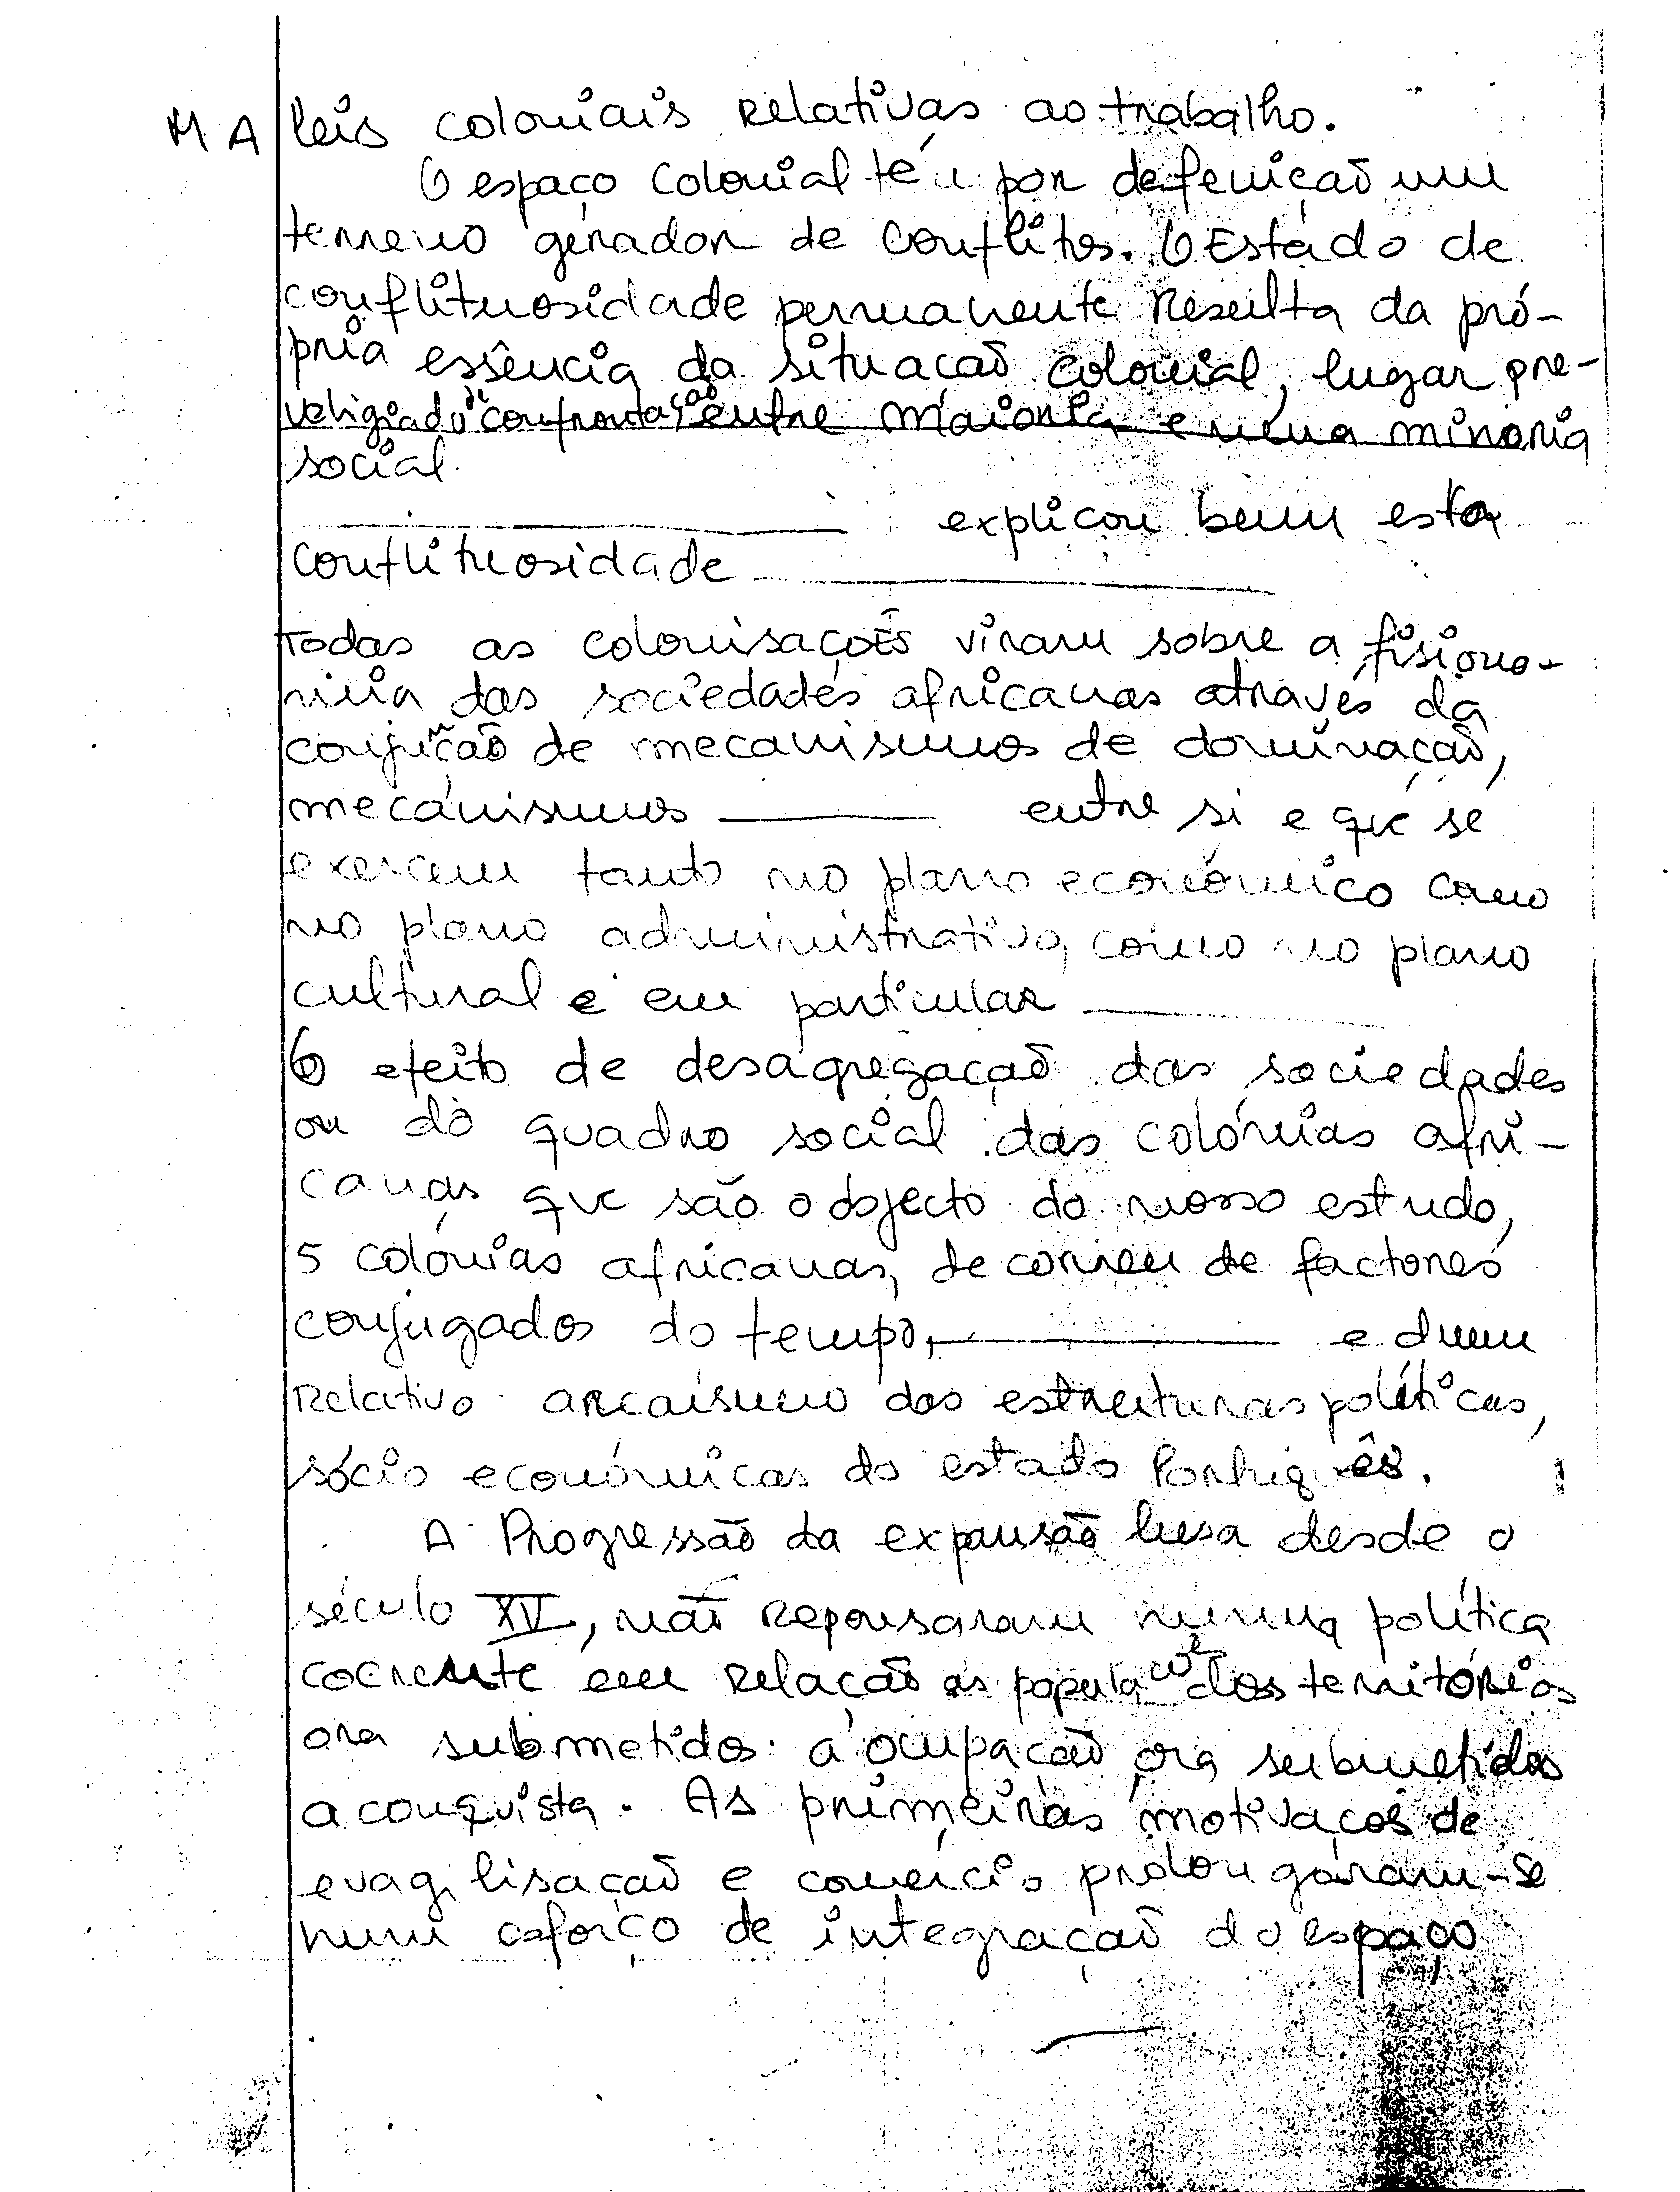 MA leis coloniais relativas ao trabalho.
O espaço colonial té u por defeniçaõ um
terreno gerador de conflitos. O Estádo de
conflituosidade permanente resulta da pró-
pria essência da situacaõ colonial, lugar pre-
veligiado de confrontaçaõ entre maioria e uma minoria
social.
__________ explicou bem esta
conflituosidade __________
Todas as colonisaçoẽs viram sobre a fisiono-
mia das sociedades africanas através da
conjunçaõ de mecanismos de dominaçaõ,
mecánismos ______ entre si e que se
exercem tanto no plano económico como
no plano administrativo, como no plano
cultural e em particular ________
O efeito de desagregaçaõ das sociedades
ou do quadro social das colónias afri-
canas que são o objecto do nosso estudo,
5 colónias africanas, decorreu de factores
conjugados do tempo, ________ e dum
relativo arcaismo das estruturas políticas,
sócio económicas do estado Português.
A Progressão da expansão lusa desde o
século XV, naõ repousaram numa política
coerente em relaçaõ as populaçoẽs dos territórios
ora submetidos a ocupaçaõ ora submetidos
a conquista. As primeiras motivaçoẽs de
evagelisaçaõ e comércio prolongáram-se
num esforço de integraçaõ do espaço